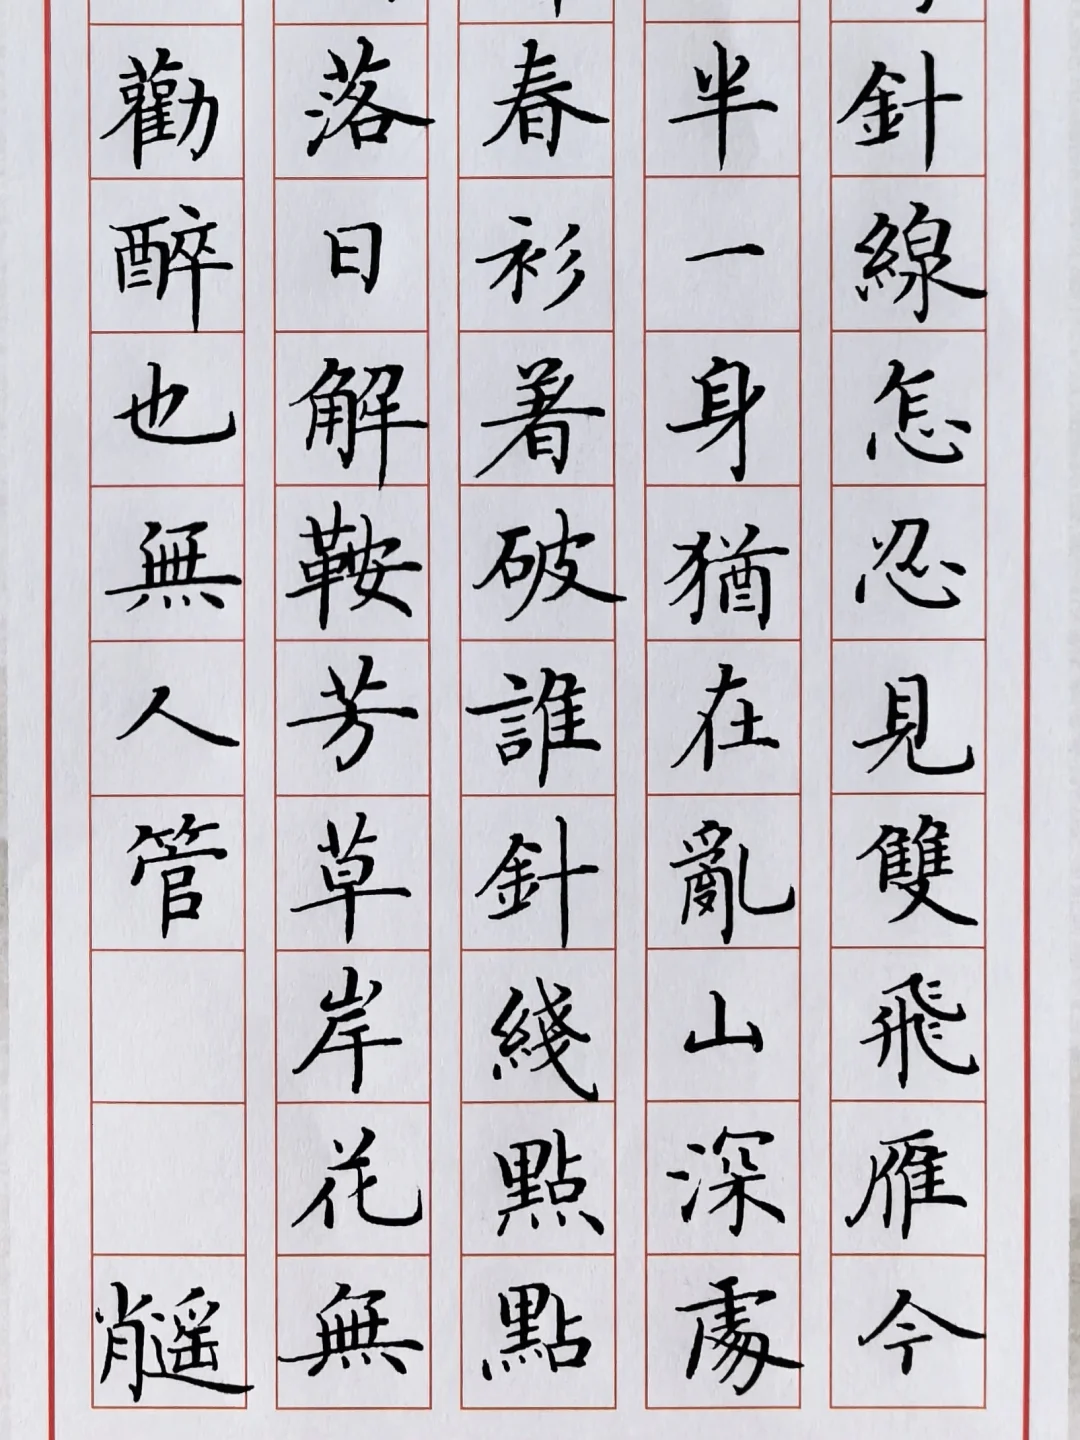 針線怎忍見雙飛雁今
半一身猶在亂山深處
春衫著破誰針綫點點
落日解鞍芳草岸花無
勸醉也無人管